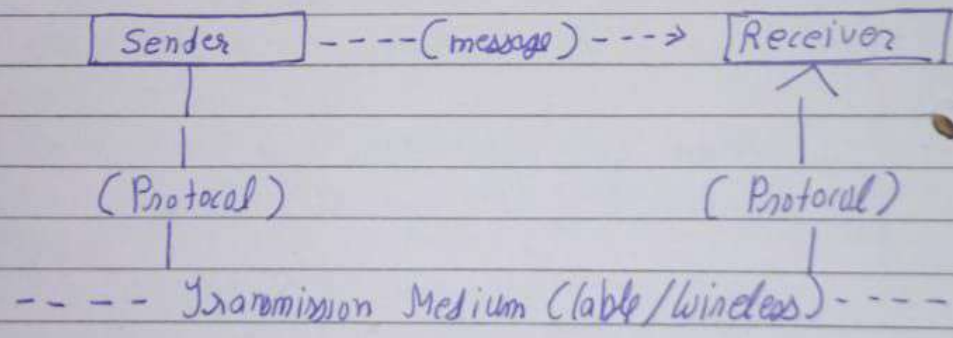 Sender ----(message)---> Receiver
(Protocal) (Protocal)
---- Transmission Medium (Cable/Wireless)----